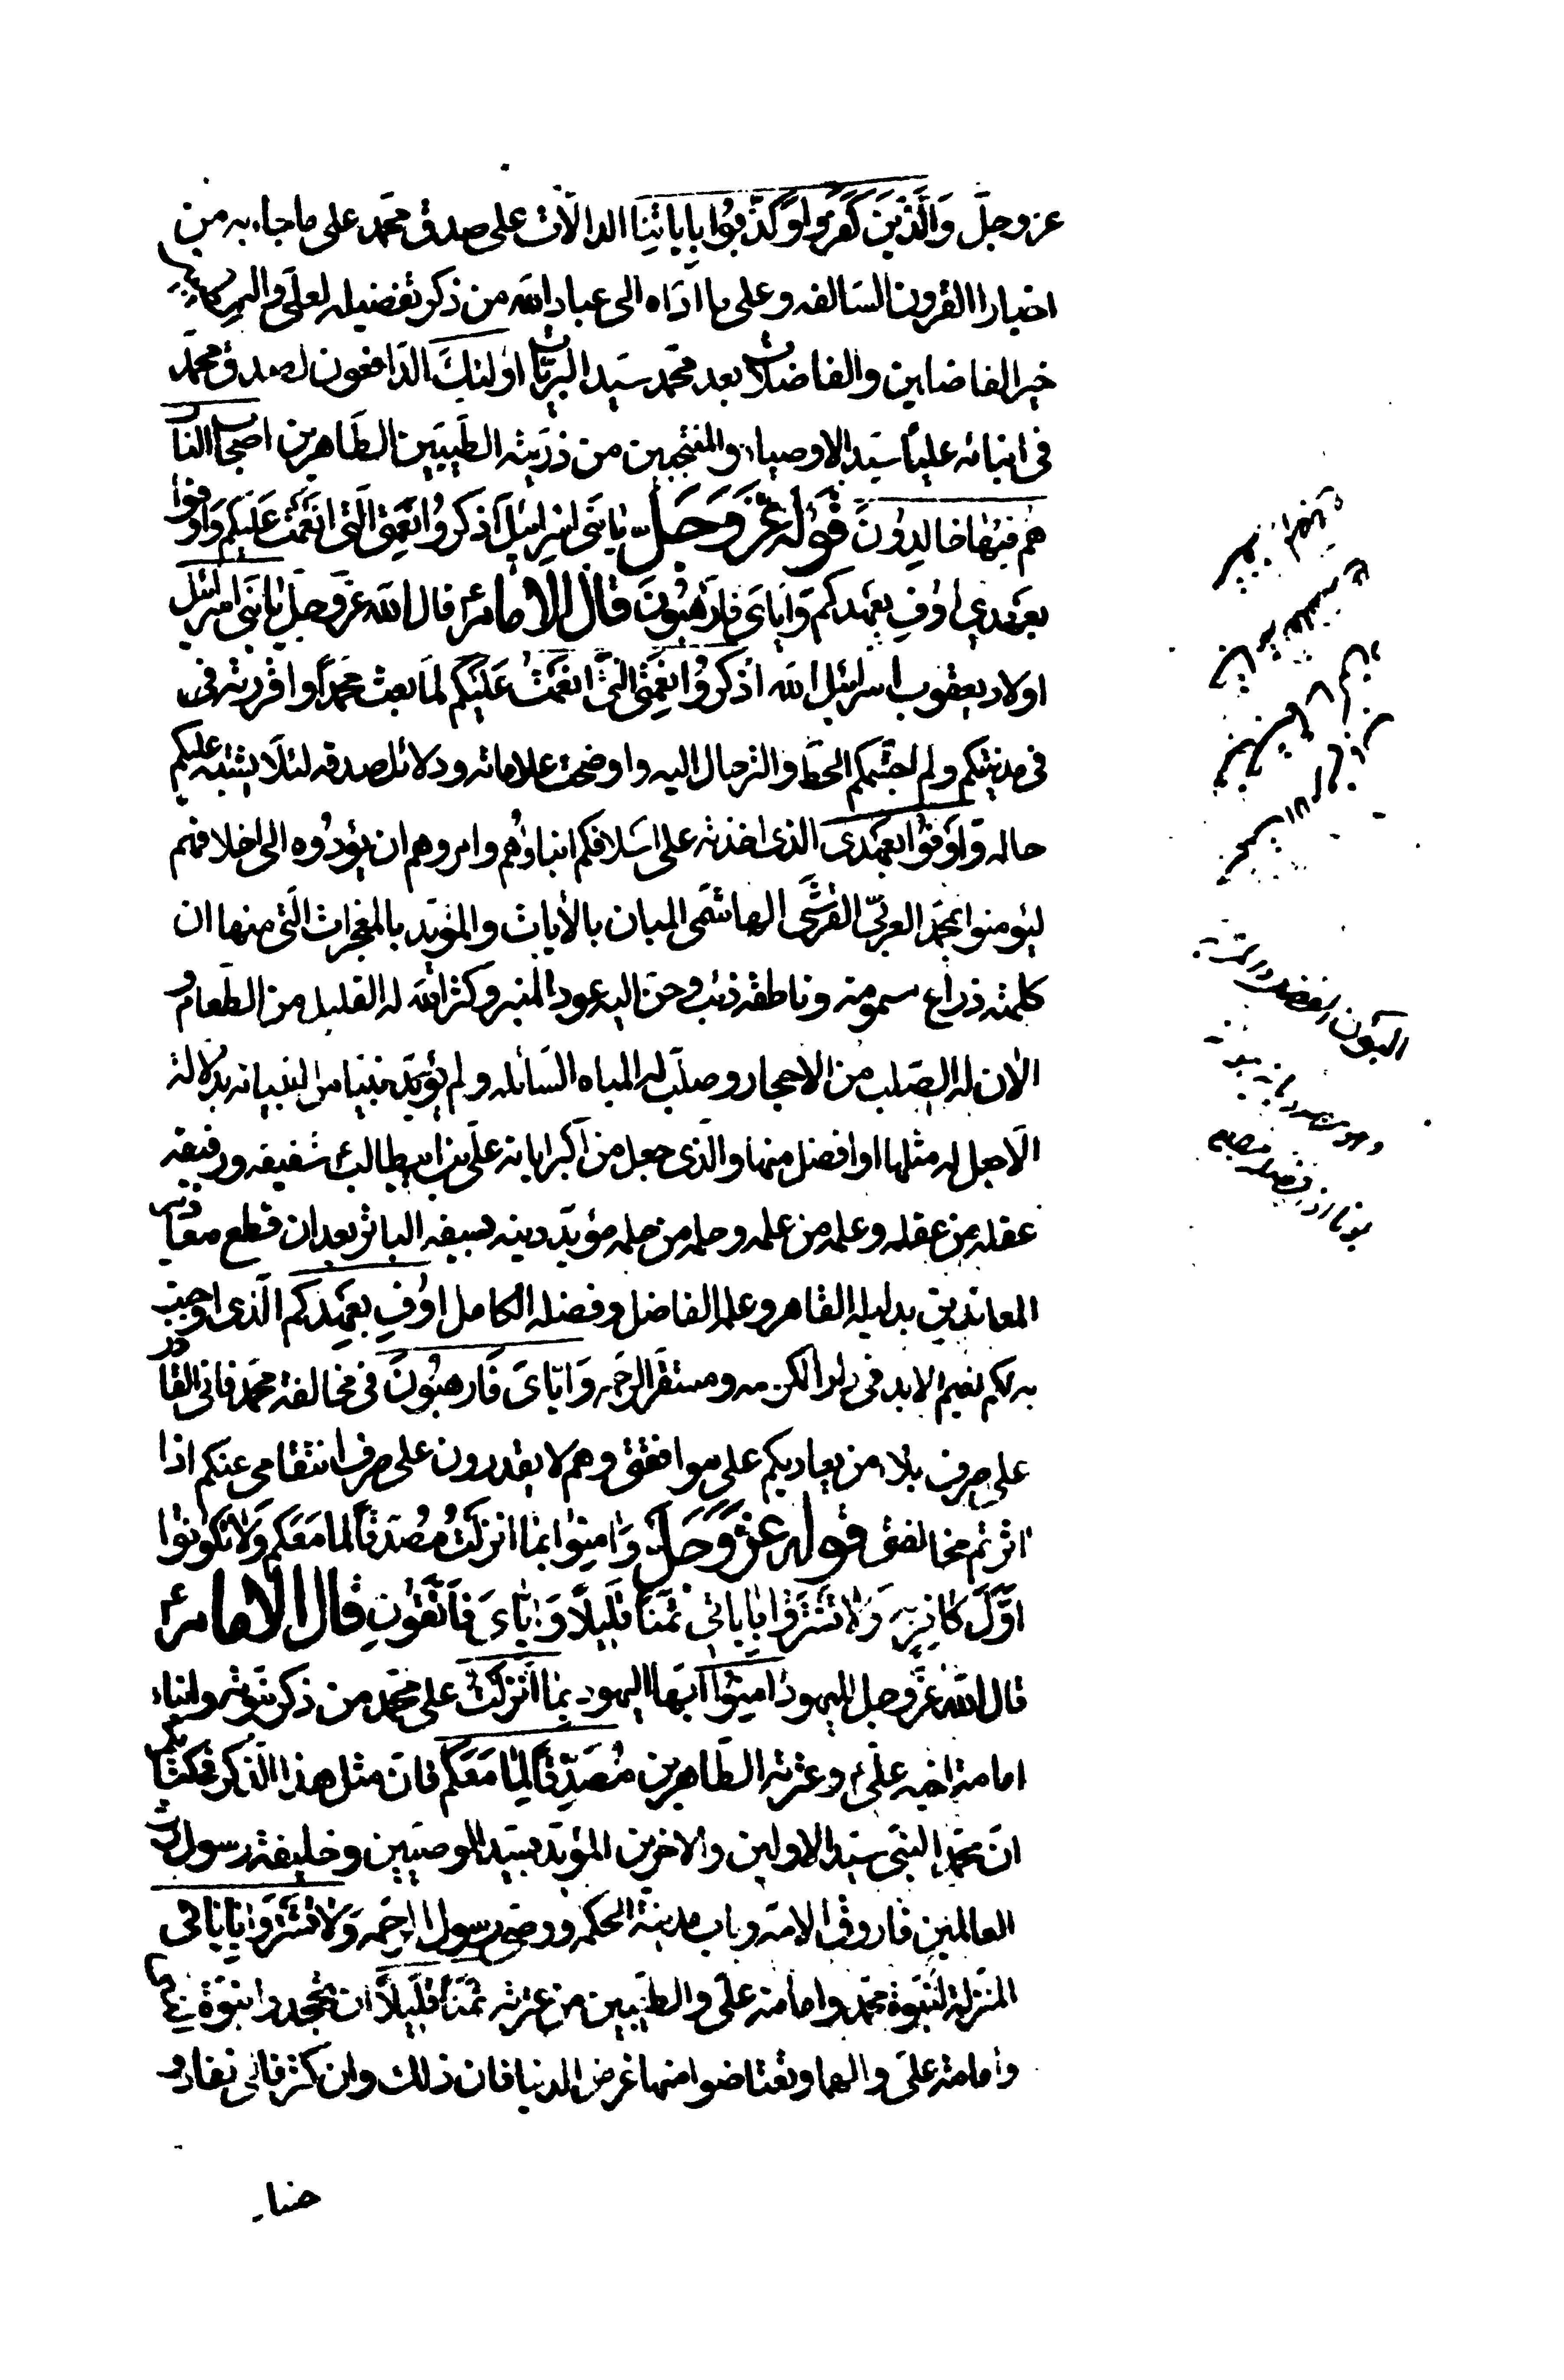 عز وجل وَالَّذينَ كَفَرُوا وَكَذَّبُوا بِاٰيٰاتِنٰا الدالّات على صدق محمّد على ما جاء به من
اخبار القرون السّالفه وعلى ما ادّاه الى عباد الله من ذكر تفضيله لعلىّ واله
خير الفاضلين والفاضلات بعد محمّد سيّد البريّات اولئك الدّافعون لصدق محمّد
فى انبائه عليّاً سيّد الاوصياء والمنتجبين من ذريّته الطّيبيّن الطّاهرين اصحاب النار
هُم فيهٰا خالِدُونَ قوله عَزَّ وَجَلّ يٰا بَنى اسرٰائيلَ اذكروُا نِعمَتِىَ الّتى انعَمتُ عَلَيكم وَاَوفوا
بعَهدى اوُفِ بعَهدكم وَايّاىَ فارهَبُونَ قال الامام قال الله عزّ وجلّ يا بَنى اسرائيل
اولاد يعقوب اسرائيل الله اُذكروُا نِعمَتِىَ الّتى انعَمتُ عَلَيكُم لمّا بعثت محمّداً واقررته فى
فى مدينتكم ولم اجشّمكم الحطّ والترحال اليه واوضحت علاماته ودلائل صدقه لئلّا يشتبه عليكم
حاله وَاَوفوُا بعَهدى الذى اخذته على اسلافكم انبياؤُهم وامروهم ان يؤدّوه الى اخلافهم
ليؤمنوا بمحمّد العربىّ القرشىّ الهاشمى المبان بالأيات والمؤيّد بالمعجزات الّتى منها ان
كلمته ذراع مسمومة وناطقه ذئب وحنّ اليه عود المنبر وكثر الله له القليل من الطّعام و
الان له الصّلب من الاحجار وصلّب له المياه السّائله ولم يؤيّد نبيّا من انبيائه بدلالة
الّا جعل له مثلها او افضل منها والّذى جعل من اكبر اياته علىّ بن ابيطالب شقيقه ورفيقه
عقله من عقله وعلمه من علمه وحلمه من حلمه مؤيّد دينه بسيفه الباتر بعد ان قطع معاذير
المعاندين بدليله القاهر وعلمه الفاضل وفضله الكامل اوُفِ بعَهدِكم الّذى اوجبت
به لكم نعيم الابد فى دار الكرامه ومستقرّ الرحمه وَايّاىَ فَارهبُونَ فى مخالفة محمّد فانى القادر
على صرف بلاء من يعاديكم على موافقتى وهم لا يقدرون على صرف انتقامى عنكم اذا
اثرتم مخالفتى قوله عَزَّ وَجَلَّ وَامِنُوا بمٰا انزلتُ مُصَدّقاً لما مَعَكُم وَلٰا تَكوُنُوا
اوَّلَ كافِرٍ بِه وَلٰا تَشتَرُوا بِاٰيٰاتى ثَمَناً قَليلاً وَايّاىَ فَاتَّقوُنِ قال الامام
قال الله عزّ وجلّ لليهود اٰمِنُوا ايّها اليهود بمٰا انزَلتُ على محمّد من ذكر نبوّته وانباء
امامة اخيه علىّ وعترته الطّاهرين مُصَدِّقاً لِمٰا مَعَكُم فانّ مثل هذا الذّكر فى كتابكم
انّ محمّد النبىّ سيّد الاولين والاخرين المؤيّد بسيّد الوصيّين وخليفة رسول ربّ
العالمين فاروق الامّة وباب مدينة الحكمه ووصىّ رسول الرحمه وَلٰا تَشتَرُوا بِاٰيٰاتى
المنزلة لنبوّة محمّد وامامة علىّ والطّيبين من عترته ثَمَناً قَليلاً ان تجحدوا نبوّة
وامامة علىّ والهما وتعتاضوا منها عرض الدنيا فان ذلك وان كثر فالى نفاد و